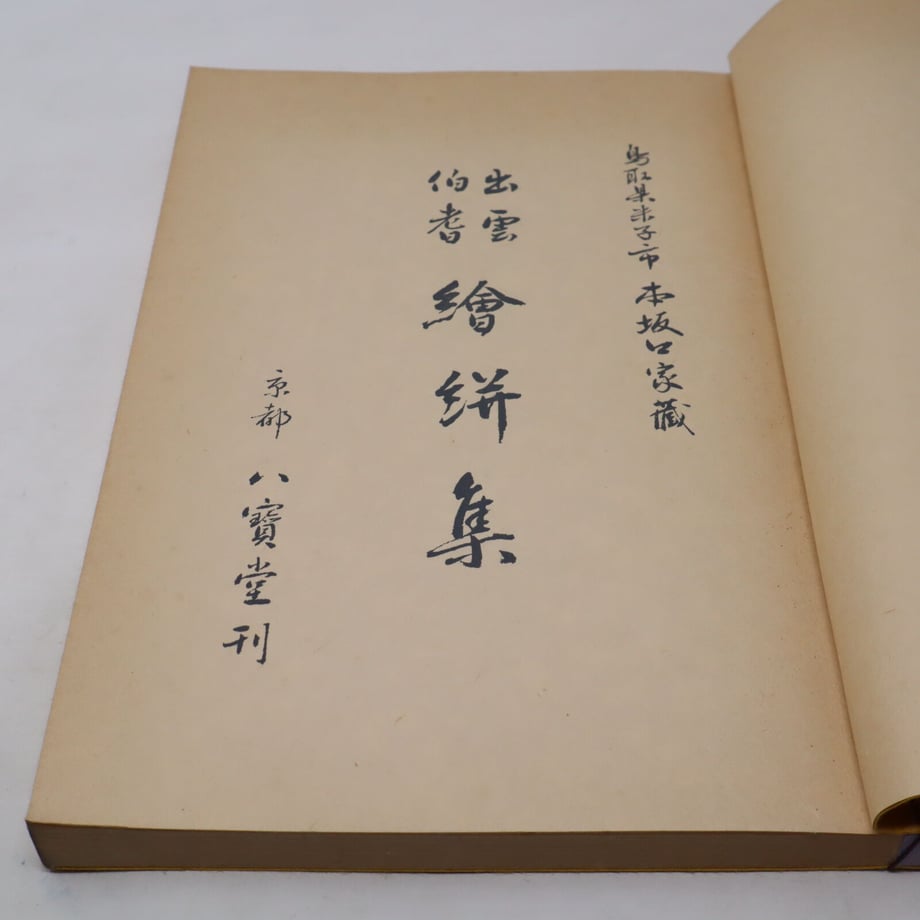 鳥取県米子市 本坂口家藏
出雲
伯耆
繪絣集
京都 八寶堂刊